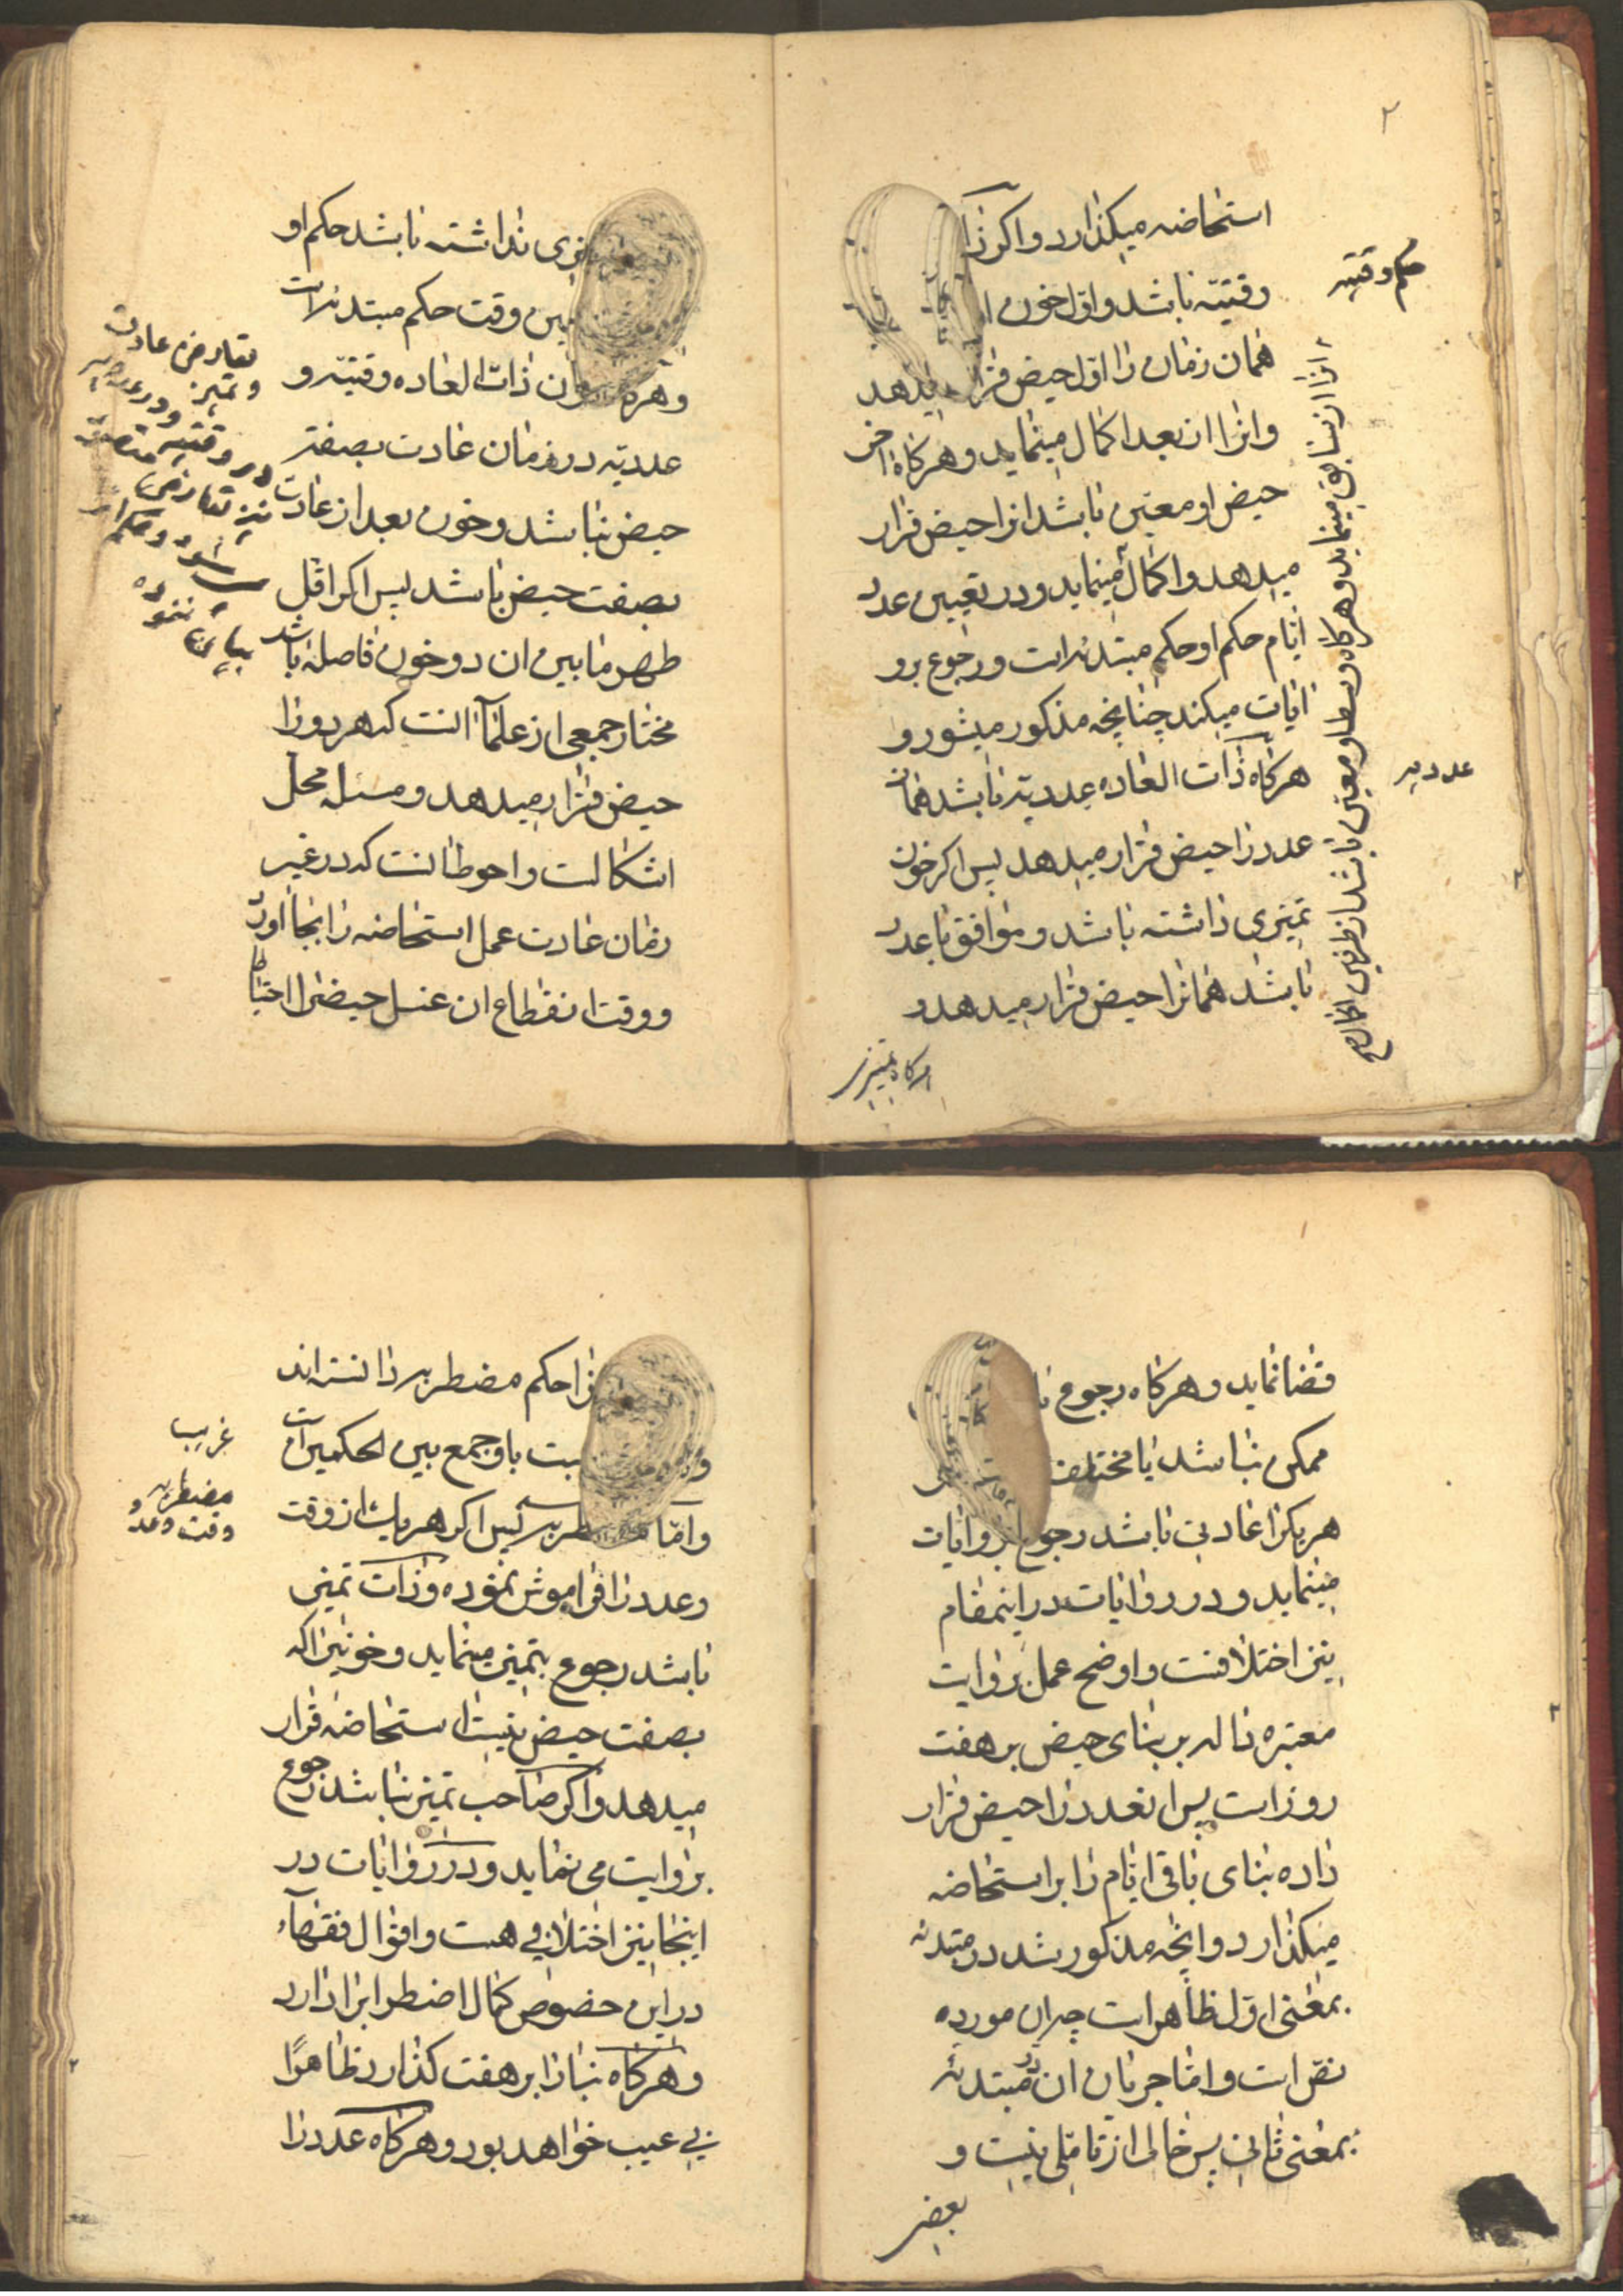 ۲
استحاضه میکذارد واکر ذا
وقتیّه باشد واوّل خون
همان زمان را اوّل حیض قرار میدهد
وانرا ان بعد اکمال مینماید وهرکاه اخر
حیض او معیّن باشد انرا حیض قرار
میدهد واکمال مینماید ودر تعیین عدد
ایّام حکم او حکم مبتدئه است ورجوع برو
ایات میکند چنانچه مذکور میشود و
هرکاه ذات العاده عددیّه باشد همان
عدد را حیض قرار میدهد پس اکر خون
تمیزی داشته باشد وموافق با عدد
باشد همانرا حیض قرار میدهد و
هرکاه تمیزی
حکم وقتیه
از سابق مینماید وهرکاه وسط او معیّن باشد از طرفین اکمال صح
عددیه
تمیزی نداشته باشد حکم او
وقت حکم مبتدئه است
وهرکاه ذات العاده وقتیّه و
عددیّه در زمان عادت بصفت
حیض نباشد وخون بعد از عادت
بصفت حیض باشد پس اکر اقلّ
طهر مابین ان دو خون فاصله باشد
مختار جمعی از علمآ انست که هر دو را
حیض قرار میدهد ومسئله محل
اشکالست واحوط انست که در غیر
زمان عادت عمل استحاضه را بجا اورد
ووقت انقطاع ان غسل حیض را احتیاطا
تعارض عادت
وتمیز
ودر عددیه
در وقتیه
نیز تعارض متصور
میشود وحکم انرا
بیان ننموده
قضا نماید وهرکاه رجوع
ممکن نباشد یا مختلف
هریکرا عادتی باشد رجوع بروایات
مینماید ودر روایات در اینمقام
نیز اختلافست واوضح عمل بروایت
معتبره داله بر بنای حیض بر هفت
روز است پس انعدد را حیض قرار
داده بنای باقی ایّام را بر استحاضه
میکذارد وانچه مذکور شد در مبتدئه
بمعنی اوّل ظاهر است چه ان مورد
نصّ است وامّا جریان ان در مبتدئه
بمعنی ثانی پس خالی از تامّلی نیست و
بعضی
را حکم مضطربه دانسته‌اند
نسبت باو جمع بین الحکمین است
وامّا مضطربه پس اکر هریک از وقت
وعدد را فراموش نموده وذات تمیز
باشد رجوع بتمیز مینماید وخونیرا که
بصفت حیض نیست استحاضه قرار
میدهد واکر صاحب تمیز نباشد رجوع
بروایت می نماید ودر روایات در
اینجا نیز اختلافی هست واقوال فقهآء
در این خصوص کمال اضطراب را دارد
وهرکاه بنا را بر هفت کذارد ظاهرًا
بی عیب خواهد بود وهرکاه عدد را
غریب
مضطربه
وقت وعدد